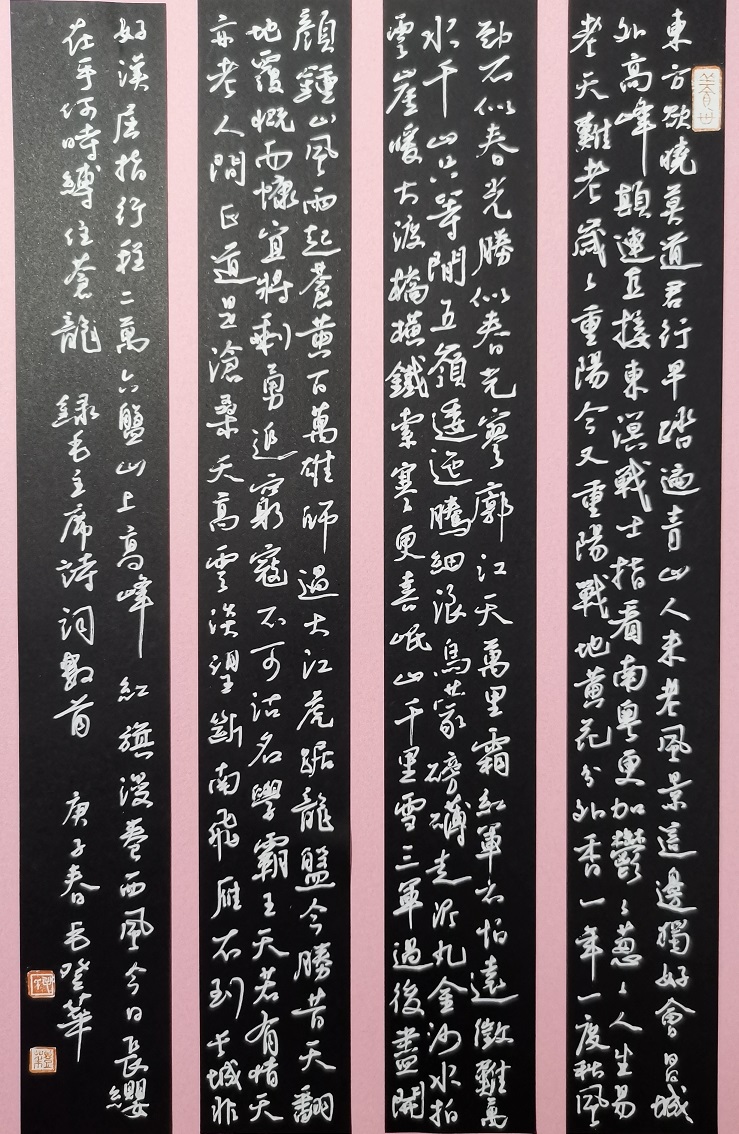 東方欲曉莫道君行早踏遍青山人未老風景這邊獨好會昌城
外高峰顛連直接東溟戰士指看南粵更加鬱〻蔥〻人生易
老天難老歲〻重陽今又重陽戰地黃花分外香一年一度秋風
勁不似春光勝似春光寥廓江天萬里霜紅軍不怕遠徵難萬
水千山只等閒五嶺逶迤騰細浪烏蒙磅礴走泥丸金沙水拍
雲崖暖大渡橋橫鐵索寒更喜岷山千里雪三軍過後盡開
顏鍾山風雨起蒼黃百萬雄師過大江虎踞龍盤今勝昔天翻
地覆慨而慷宜將剩勇追窮寇不可沽名學霸王天若有情天
亦老人間正道是滄桑天高雲淡望斷南飛雁不到長城非
好漢屈指行程二萬六盤山上高峰紅旗漫卷西風今日長纓
在手何時縛住蒼龍 錄毛主席詩詞數首 庚子春毛華